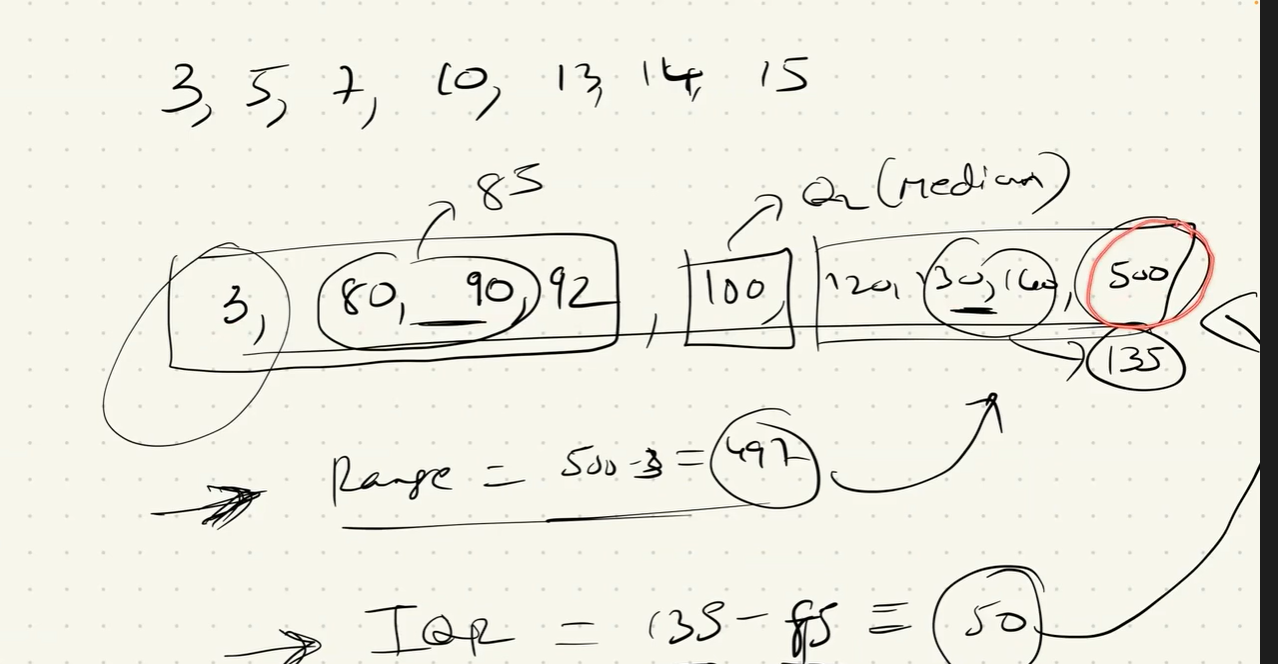 3, 5, 7, 10, 13, 14, 15
85
Q2 (Median)
3, 80, 90, 92, 100, 120, 130, 160, 500
135
Range = 500-3 = 497
IQR = 135 - 85 = 50